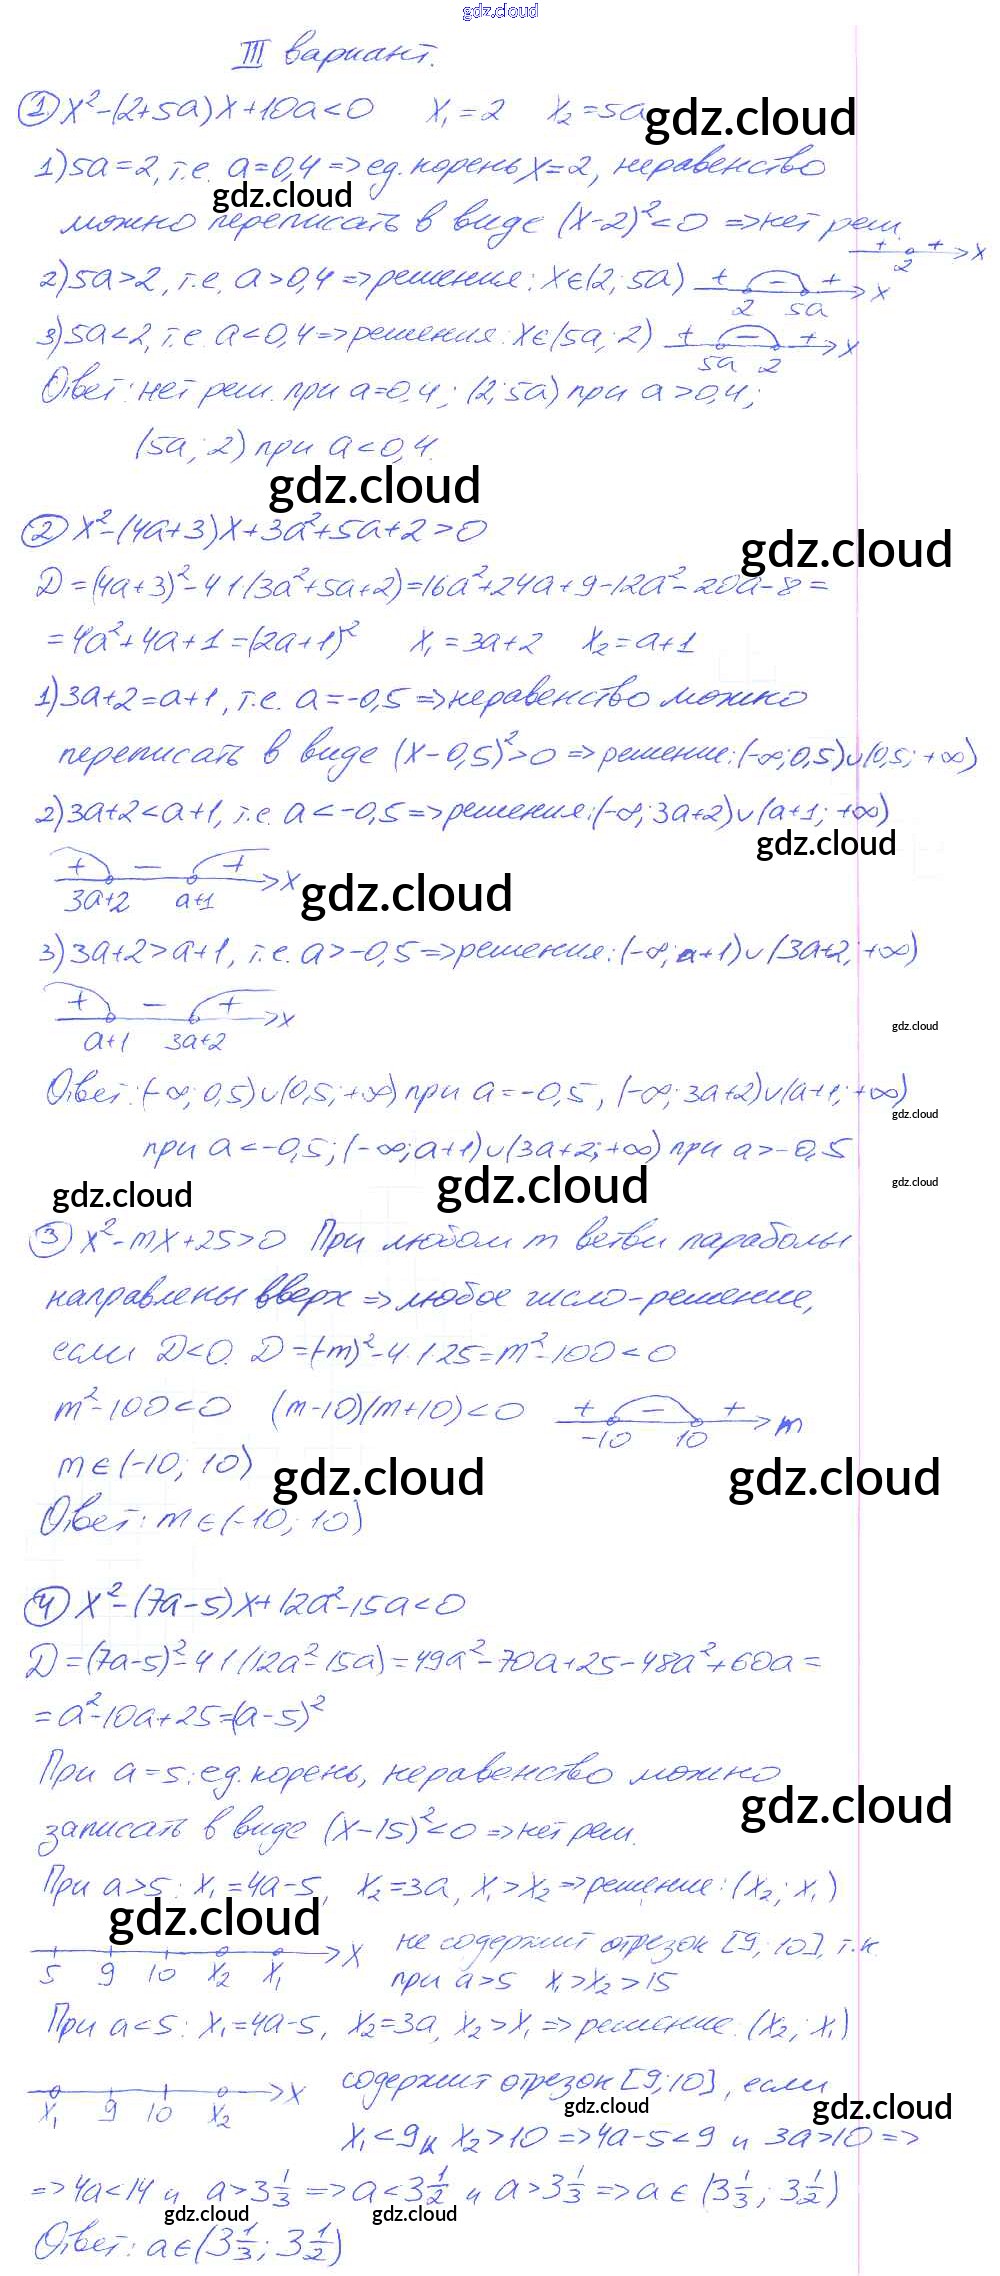 gdz.cloud
III вариант.
① x²-(2+5a)x+10a<0 x₁=2 x₂=5a
gdz.cloud
1) 5a=2, т.е. a=0,4 => ед. корень x=2, неравенство
gdz.cloud
можно переписать в виде (x-2)²<0 => нет реш.
+ + x
2
2) 5a>2, т.е. a>0,4 => решения: x∈(2; 5a) + - + x
2 5a
3) 5a<2, т.е. a<0,4 => решения: x∈(5a; 2) + - + x
5a 2
Ответ: нет реш. при a=0,4; (2; 5a) при a>0,4;
(5a; 2) при a<0,4.
gdz.cloud
② x²-(4a+3)x+3a²+5a+2>0
gdz.cloud
D=(4a+3)²-4·1·(3a²+5a+2)=16a²+24a+9-12a²-20a-8=
=4a²+4a+1=(2a+1)² x₁=3a+2 x₂=a+1
1) 3a+2=a+1, т.е. a=-0,5 => неравенство можно
переписать в виде (x-0,5)²>0 => решение: (-∞; 0,5)∪(0,5; +∞)
2) 3a+2<a+1, т.е. a<-0,5 => решения: (-∞; 3a+2)∪(a+1; +∞)
gdz.cloud
+ - + x
gdz.cloud
3a+2 a+1
3) 3a+2>a+1, т.е. a>-0,5 => решения: (-∞; a+1)∪(3a+2; +∞)
+ - + x
gdz.cloud
a+1 3a+2
Ответ: (-∞; 0,5)∪(0,5; +∞) при a=-0,5, (-∞; 3a+2)∪(a+1; +∞)
gdz.cloud
при a<-0,5; (-∞; a+1)∪(3a+2; +∞) при a>-0,5
gdz.cloud
gdz.cloud
gdz.cloud
③ x²-mx+25>0 При любом m ветви параболы
направлены вверх => любое число-решение,
если D<0. D=(-m)²-4·1·25=m²-100<0
m²-100<0 (m-10)(m+10)<0 + - + m
-10 10
m∈(-10; 10)
gdz.cloud
gdz.cloud
Ответ: m∈(-10; 10)
④ x²-(7a-5)x+12a²-15a<0
D=(7a-5)²-4·1·(12a²-15a)=49a²-70a+25-48a²+60a=
=a²-10a+25=(a-5)²
При a=5: ед. корень, неравенство можно
gdz.cloud
записать в виде (x-15)²<0 => нет реш.
При a>5: x₁=4a-5, x₂=3a, x₁>x₂ => решение: (x₂; x₁)
gdz.cloud
не содержит отрезок [9; 10], т.к.
x
5 9 10 x₂ x₁
при a>5 x₁>x₂>15
При a<5: x₁=4a-5, x₂=3a, x₂>x₁ => решение: (x₂; x₁)
содержит отрезок [9; 10], если
x
x₁ 9 10 x₂
gdz.cloud
gdz.cloud
x₁<9 и x₂>10 => 4a-5<9 и 3a>10 =>
=> 4a<14 и a>3 1/3 => a<3 1/2 и a>3 1/3 => a∈(3 1/3; 3 1/2)
gdz.cloud
gdz.cloud
Ответ: a∈(3 1/3; 3 1/2)